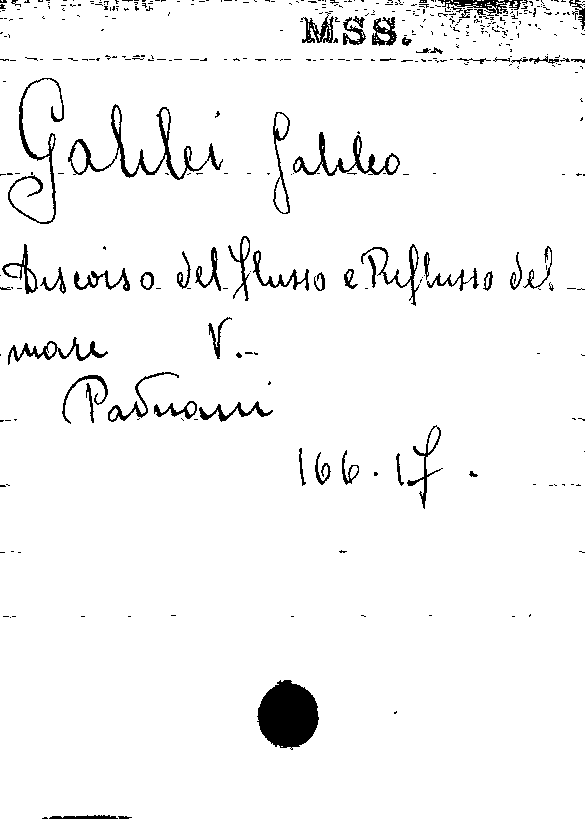 MSS.
Galilei Galileo
Discorso del flusso e Reflusso del
mare V.
Paduani
166.17.